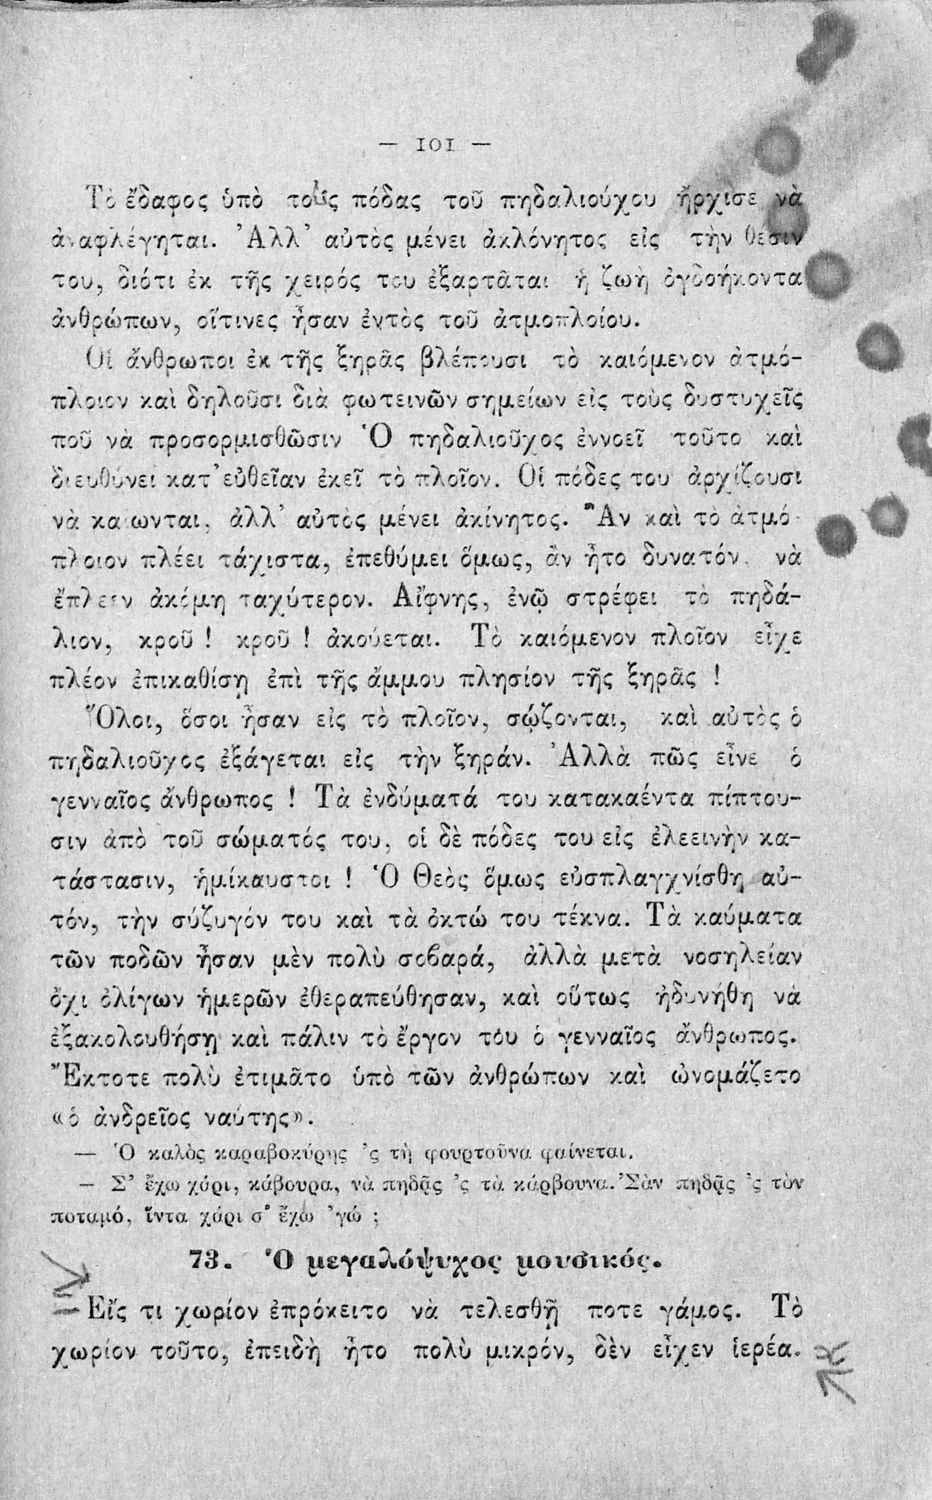 — 101 —
Τὸ ἔδαφος ὑπὸ τοὺς πόδας τοῦ πηδαλιούχου ἤρχισε νὰ
ἀναφλέγηται. Ἀλλ' αὐτὸς μένει ἀκλόνητος εἰς τὴν θέσιν
του, διότι ἐκ τῆς χειρός του ἐξαρτᾶται ἡ ζωὴ ὀγδοήκοντα
ἀνθρώπων, οἵτινες ἦσαν ἐντὸς τοῦ ἀτμοπλοίου.
Οἱ ἄνθρωποι ἐκ τῆς ξηρᾶς βλέπουσι τὸ καιόμενον ἀτμό-
πλοιον καὶ δηλοῦσι διὰ φωτεινῶν σημείων εἰς τοὺς δυστυχεῖς
ποῦ νὰ προσορμισθῶσιν Ὁ πηδαλιοῦχος ἐννοεῖ τοῦτο καὶ
διευθύνει κατ' εὐθεῖαν ἐκεῖ τὸ πλοῖον. Οἱ πόδες του ἀρχίζουσι
νὰ καίωνται, ἀλλ' αὐτὸς μένει ἀκίνητος. Ἂν καὶ τὸ ἀτμό-
πλοιον πλέει τάχιστα, ἐπεθύμει ὅμως, ἂν ἦτο δυνατόν, νὰ
ἔπλεεν ἀκόμη ταχύτερον. Αἴφνης, ἐνῷ στρέφει τὸ πηδά-
λιον, κροῦ ! κροῦ ! ἀκούεται. Τὸ καιόμενον πλοῖον εἶχε
πλέον ἐπικαθίσῃ ἐπὶ τῆς ἄμμου πλησίον τῆς ξηρᾶς !
Ὅλοι, ὅσοι ἦσαν εἰς τὸ πλοῖον, σῴζονται, καὶ αὐτὸς ὁ
πηδαλιοῦχος ἐξάγεται εἰς τὴν ξηράν. Ἀλλὰ πῶς εἶνε ὁ
γενναῖος ἄνθρωπος ! Τὰ ἐνδύματά του κατακαέντα πίπτου-
σιν ἀπὸ τοῦ σώματός του, οἱ δὲ πόδες του εἰς ἐλεεινὴν κα-
τάστασιν, ἡμίκαυστοι ! Ὁ Θεὸς ὅμως εὐσπλαγχνίσθη αὐ-
τόν, τὴν σύζυγόν του καὶ τὰ ὀκτώ του τέκνα. Τὰ καύματα
τῶν ποδῶν ἦσαν μὲν πολὺ σοβαρά, ἀλλὰ μετὰ νοσηλείαν
ὄχι ὀλίγων ἡμερῶν ἐθεραπεύθησαν, καὶ οὕτως ἠδυνήθη νὰ
ἐξακολουθήσῃ καὶ πάλιν τὸ ἔργον του ὁ γενναῖος ἄνθρωπος.
Ἔκτοτε πολὺ ἐτιμᾶτο ὑπὸ τῶν ἀνθρώπων καὶ ὠνομάζετο
«ὁ ἀνδρεῖος ναύτης».
— Ὁ καλὸς καραβοκύρης 'ς τὴ φουρτοῦνα φαίνεται.
— Σ' ἔχω χάρι, κάβουρα, νὰ πηδᾷς 'ς τὰ κάρβουνα. Σὰν πηδᾷς 'ς τὸν
ποταμό, ἵντα χάρι σ' ἔχω 'γώ ;
73. Ὁ μεγαλόψυχος μουσικός.
Εἴς τι χωρίον ἐπρόκειτο νὰ τελεσθῇ ποτε γάμος. Τὸ
χωρίον τοῦτο, ἐπειδὴ ἦτο πολὺ μικρόν, δὲν εἶχεν ἱερέα.